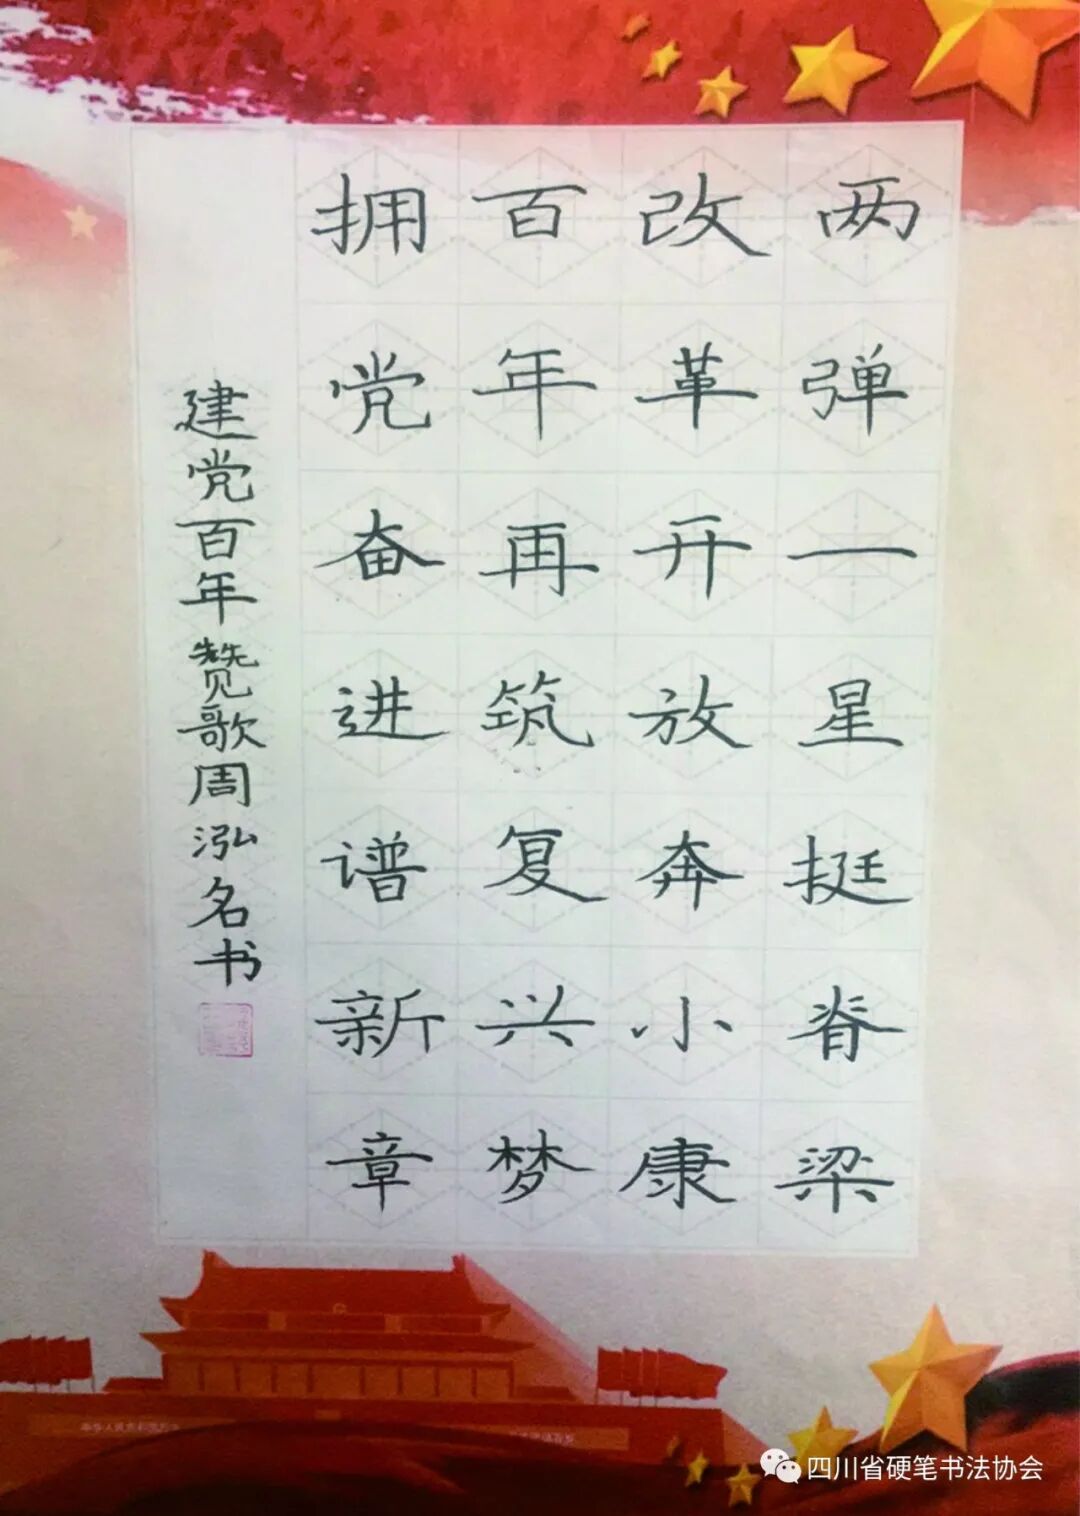 两弹一星挺脊梁
改革开放奔小康
百年再筑复兴梦
拥党奋进谱新章
建党百年赞歌周泓名书
四川省硬笔书法协会